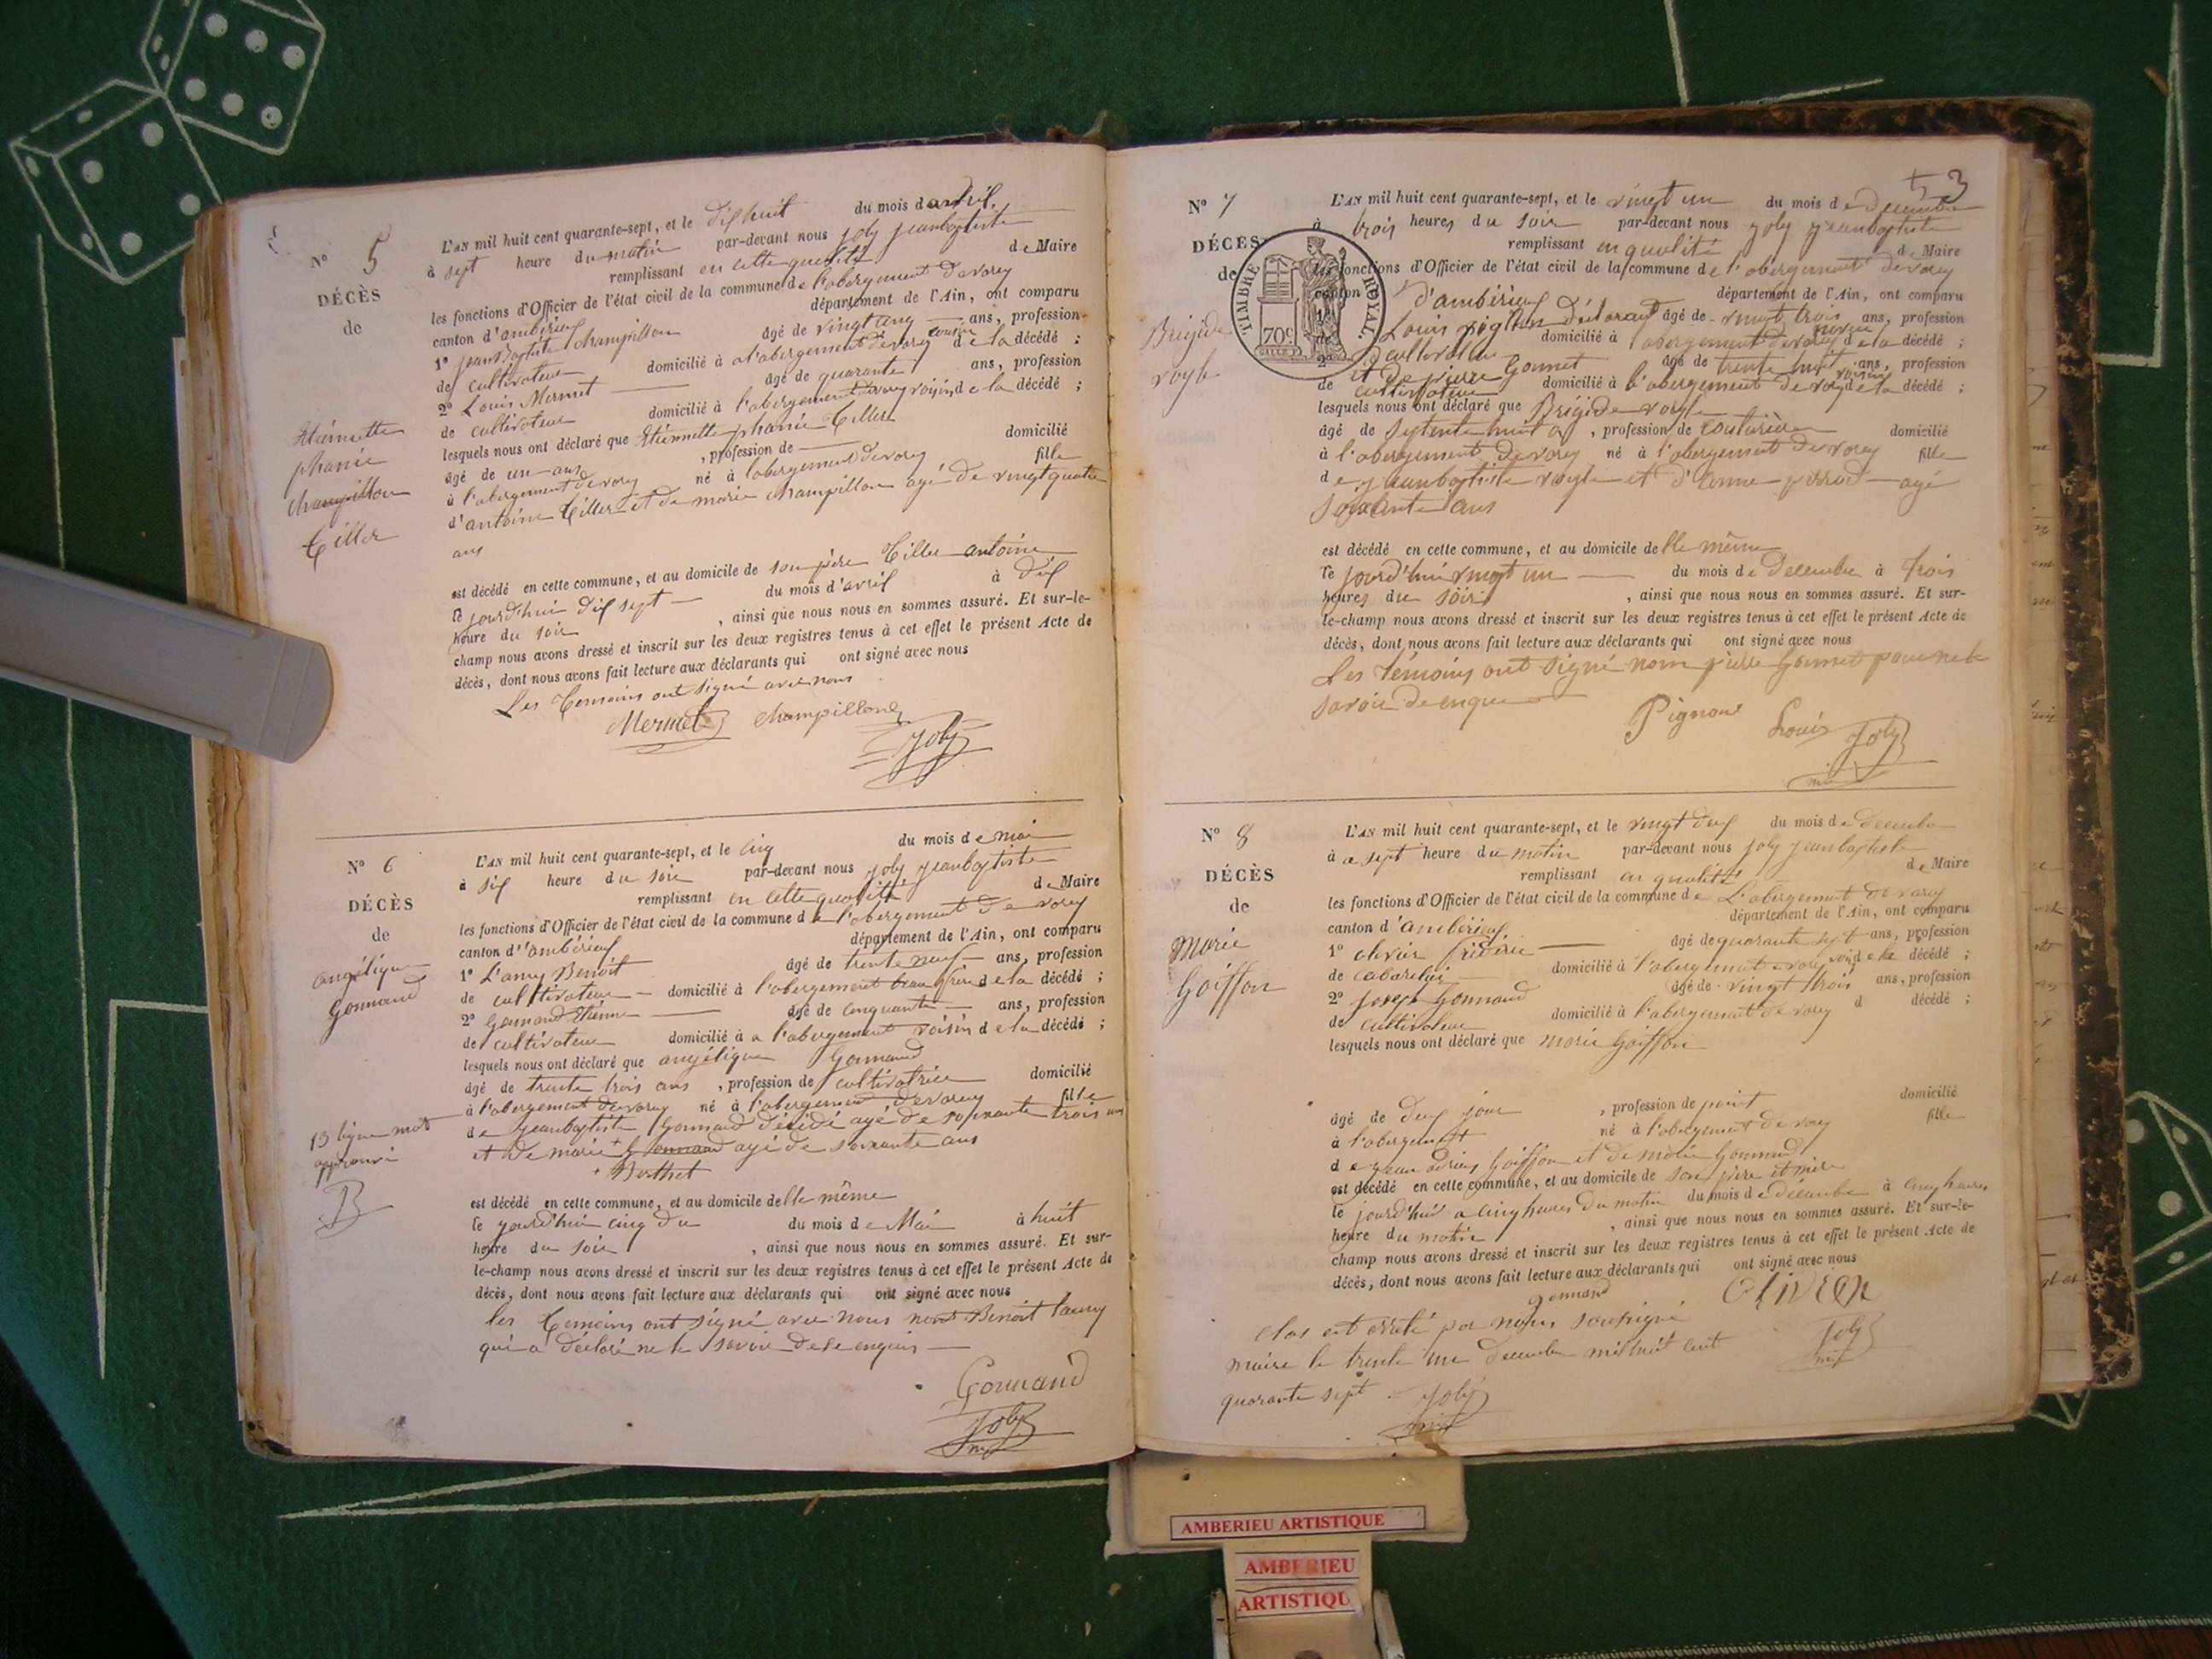 N° 5
DÉCÈS
de
Etiennette
phanie
champillon
Tiller
L'AN mil huit cent quarante-sept, et le dix huit du mois d'avril
à sept heure du matin par-devant nous joly jeanbaptiste
remplissant en cette qualité de Maire
les fonctions d'Officier de l'état civil de la commune de l'abergement de varey
canton d'ambérieux département de l'Ain, ont comparu
1° jean Baptiste champillon âgé de vingt cinq ans, profession
de cultivateur domicilié à a l'abergement de varey cousin de la décédé ;
2° Louis Mermet âgé de quarante ans, profession
de cultivateur domicilié à l'abergement de varey voisin de la décédé ;
lesquels nous ont déclaré que Etiennette phanie Tiller
âgé de un ans , profession de domicilié
à l'abergement de varey né à l'abergement de varey fille
d'antoine Tiller et de marie champillon agé de vingt quatre
ans
est décédé en cette commune, et au domicile de son père Tiller antoine
le jourd'hui dix sept du mois d'avril à dix
heure du soir , ainsi que nous nous en sommes assuré. Et sur-le-
champ nous avons dressé et inscrit sur les deux registres tenus à cet effet le présent Acte de
décès, dont nous avons fait lecture aux déclarants qui ont signé avec nous
Les Temoins ont signé avec nous
Mermet champillon
Joly
N° 6
DÉCÈS
de
angélique
Gonnand
13 ligne mot
approuvé
L'AN mil huit cent quarante-sept, et le cinq du mois de mai
à six heure du soir par-devant nous joly jeanbaptiste
remplissant en cette qualité de Maire
les fonctions d'Officier de l'état civil de la commune de l'abergement de varey
canton d'ambérieux département de l'Ain, ont comparu
1° Lamy Benoit âgé de trente neuf ans, profession
de cultivateur domicilié à l'abergement beau frère de la décédé ;
2° Gonnand Etienne âgé de cinquante ans, profession
de cultivateur domicilié à a l'abergement voisin de la décédé ;
lesquels nous ont déclaré que angélique Gonnand
âgé de trente trois ans , profession de cultivatrice domicilié
à l'abergement de varey né à l'abergement de varey fille
de jeanbaptiste Gonnand décédé agé de soixante trois ans
et de marie + Gonnand agé de soixante ans
+ Berthet
est décédé en cette commune, et au domicile de lle même
le jourd'hui cinq du du mois de Mai à huit
heure du soir , ainsi que nous nous en sommes assuré. Et sur-
le-champ nous avons dressé et inscrit sur les deux registres tenus à cet effet le présent Acte de
décès, dont nous avons fait lecture aux déclarants qui ont signé avec nous
les Temoins ont signé avec nous non Benoit Lamy
qui a déclaré ne le savoir de le enquis
Gonnand
Joly
53
N° 7
DÉCÈS
de
Brigide
royle
TIMBRE ROYAL
70c
L'AN mil huit cent quarante-sept, et le vingt un du mois de Décembre
à trois heures du soir par-devant nous joly jeanbaptiste
remplissant en qualité de Maire
les fonctions d'Officier de l'état civil de la commune de l'abergement de varey
canton d'ambérieux département de l'Ain, ont comparu
1° Louis âgé de vingt trois ans, profession
de cultivateur domicilié à l'abergement de varey neveu de la décédé ;
2° et de pierre Gonnet âgé de trente huit ans, profession
de cultivateur domicilié à l'abergement de varey voisin de la décédé ;
lesquels nous ont déclaré que Brigide royle
âgé de septente huit a , profession de couturière domicilié
à l'abergement de varey né à l'abergement de varey fille
de jeanbaptiste royle et d'anne perrod agé
soixante ans
est décédé en cette commune, et au domicile de lle même
le jourd'hui vingt un du mois de Décembre à trois
heures du soir , ainsi que nous nous en sommes assuré. Et sur-
le-champ nous avons dressé et inscrit sur les deux registres tenus à cet effet le présent Acte de
décès, dont nous avons fait lecture aux déclarants qui ont signé avec nous
Les témoins ont signé nom pierre Gonnet pour ne le
savoir de enquis
Pignon Louis Joly
N° 8
DÉCÈS
de
Marie
Goiffon
L'AN mil huit cent quarante-sept, et le vingt deux du mois de Décembre
à a sept heure du matin par-devant nous joly jeanbaptiste
remplissant en qualité de Maire
les fonctions d'Officier de l'état civil de la commune de L'abergement de varey
canton d'ambérieux département de l'Ain, ont comparu
1° olivier frédéric âgé de quarante sept ans, profession
de cabaretier domicilié à l'abergement varey voisin de la décédé ;
2° joseph Gonnand âgé de vingt trois ans, profession
de cultivateur domicilié à l'abergement de varey d décédé ;
lesquels nous ont déclaré que marie Goiffon
âgé de deux jour , profession de point domicilié
à l'abergement né à l'abergement de varey fille
de jean Goiffon et de marie Gonnand
est décédé en cette commune, et au domicile de son père et mère
le jourd'hui a cinq heures du matin du mois de décembre à cinq heures
heure du matin , ainsi que nous nous en sommes assuré. Et sur-le-
champ nous avons dressé et inscrit sur les deux registres tenus à cet effet le présent Acte de
décès, dont nous avons fait lecture aux déclarants qui ont signé avec nous
gonnand OLIVIER
clos et arrêté par nous soussigné
maire le trente un décembre mil huit cent
quarante sept Joly
Joly
AMBERIEU ARTISTIQUE
AMBERIEU
ARTISTIQU